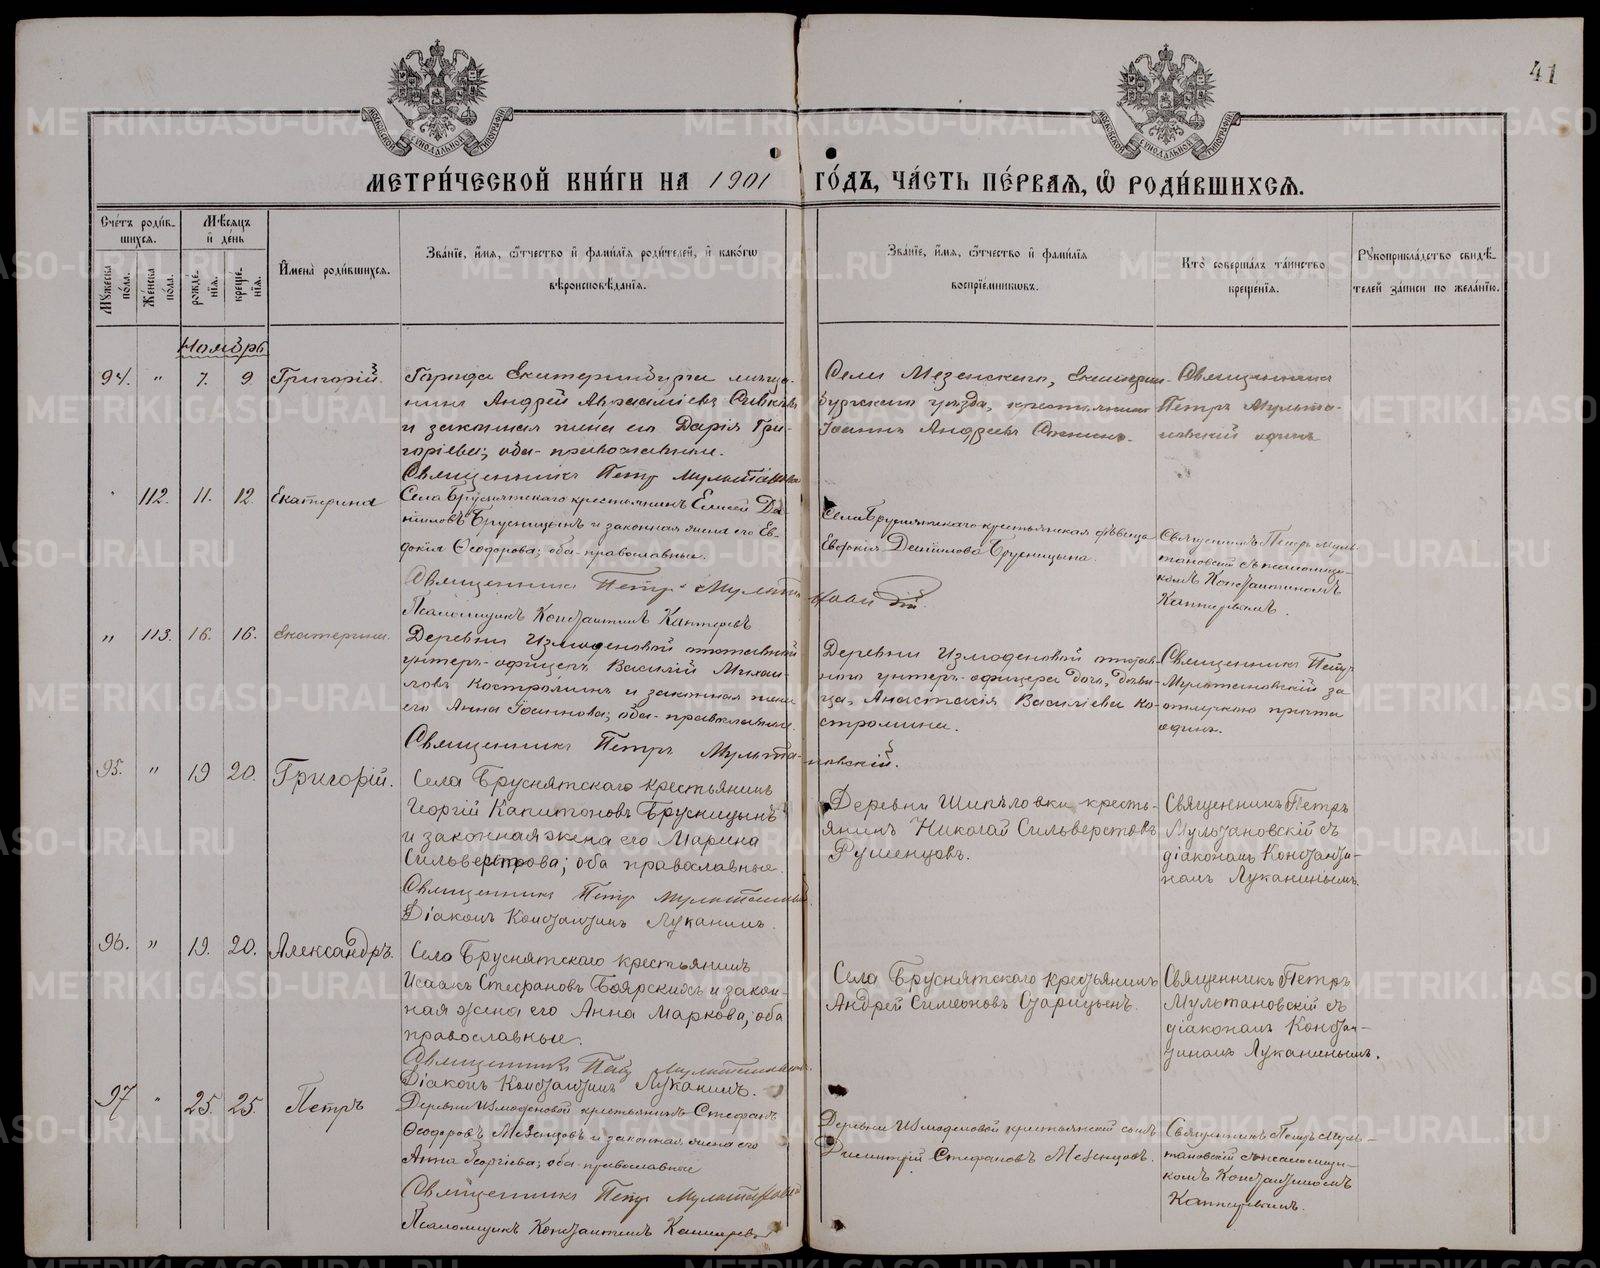 41
МЕТРИ́ЧЕСКОЙ КНИ́ГИ НА 1901 ГО́ДЪ, ЧА́СТЬ ПЕ́РВАЯ, Ѡ РОДИ́ВШИХСЯ.
Сче́тъ роди́в-
шихся.
Мꙋжеска по́ла.
Же́нска по́ла.
Мѣ́сяцъ и де́нь
рожде́-
нїя.
креще́-
нїя.
И҆мена̀ роди́вшихся.
Зва́нїе, и҆́мя, ѻ҆́тчество и҆ фами́лїя роди́телей, и҆ како́гѡ
вѣроисповѣ́данїя.
Зва́нїе, и҆́мя, ѻ҆́тчество и҆ фами́лїя
воспрїе́мникѡвъ.
Кто̀ соверша́лъ та́инство
креще́нїя.
Рꙋкоприкла́дство свидѣ́-
телей за́писи по жела́нїю.
Ноябрь
94. " 7. 9. Григорій.
Города Екатеринбурга мѣща-
нинъ Андрей
и законная жена его Дарія Гри-
горіева; оба православные.
Священникъ Петръ Мультановскій
Села Мезенскаго, Екатерин-
бургскаго уѣзда, крестьянинъ
Іоаннъ Андреевъ
Священникъ
Петръ Мульта-
новскій одинъ
112. 11. 12. Екатерина
Села Бруснятскаго крестьянинъ Елисей Да-
ніиловъ Брусницынъ и законная жена его Ев-
докія Ѳеодорова; оба православные.
Священникъ Петръ Мультановскій.
Псаломщикъ Константинъ Кантеревъ
Села Бруснятскаго крестьянская дѣвица
Евдокія Даніилова Брусницына.
Священникъ Петръ Муль-
тановскій съ псаломщи-
комъ Константиномъ
" 113. 16. 16. Екатерина.
Деревни Измоденовой отставной
унтеръ-офицеръ Василій Михаи-
ловъ Костроминъ и законная жена
его Анна Іоаннова; оба православные.
Священникъ Петръ Мультановскій.
Деревни Измоденовой отстав-
ного унтеръ-офицера дочь, дѣви-
ца, Анастасія Василіева Ко-
стромина.
Священникъ Петръ
Мультановскій за
отлучкою причта
одинъ.
95. " 19 20. Григорій.
Села Бруснятскаго крестьянинъ
Георгій Капитоновъ Брусницынъ
и законная жена его Марина
Сильвестрова; оба православные.
Священникъ Петръ Мультановскій
Діаконъ Константинъ Луканинъ.
Деревни Шипѣловки кресть-
янинъ Николай Сильверстовъ
Руменцовъ.
Священникъ Петръ
Мультановскій съ
діакономъ Константи-
номъ Луканинымъ.
96. " 19. 20. Александръ.
Села Бруснятскаго крестьянинъ
Исаакъ Стефановъ Боярскихъ и закон-
ная жена его Анна Маркова; оба
православные.
Священникъ Петръ Мультановскій
Діаконъ Константинъ Луканинъ.
Села Бруснятскаго крестьянинъ
Андрей Симеоновъ Старицынъ.
Священникъ Петръ
Мультановскій съ
діакономъ Констан-
тиномъ Луканинымъ.
97 " 25. 25. Петръ
Деревни Измоденовой крестьянинъ Стефанъ
Ѳеодоровъ Мезенцовъ и законная жена его
Анна Георгіева; оба православные
Священникъ Петръ Мультановскій
Псаломщикъ Константинъ
Деревни Измоденовой крестьянскій сынъ
Димитрій Стефановъ Мезенцовъ.
Священникъ Петръ Муль-
тановскій съ псаломщи-
комъ Константиномъ